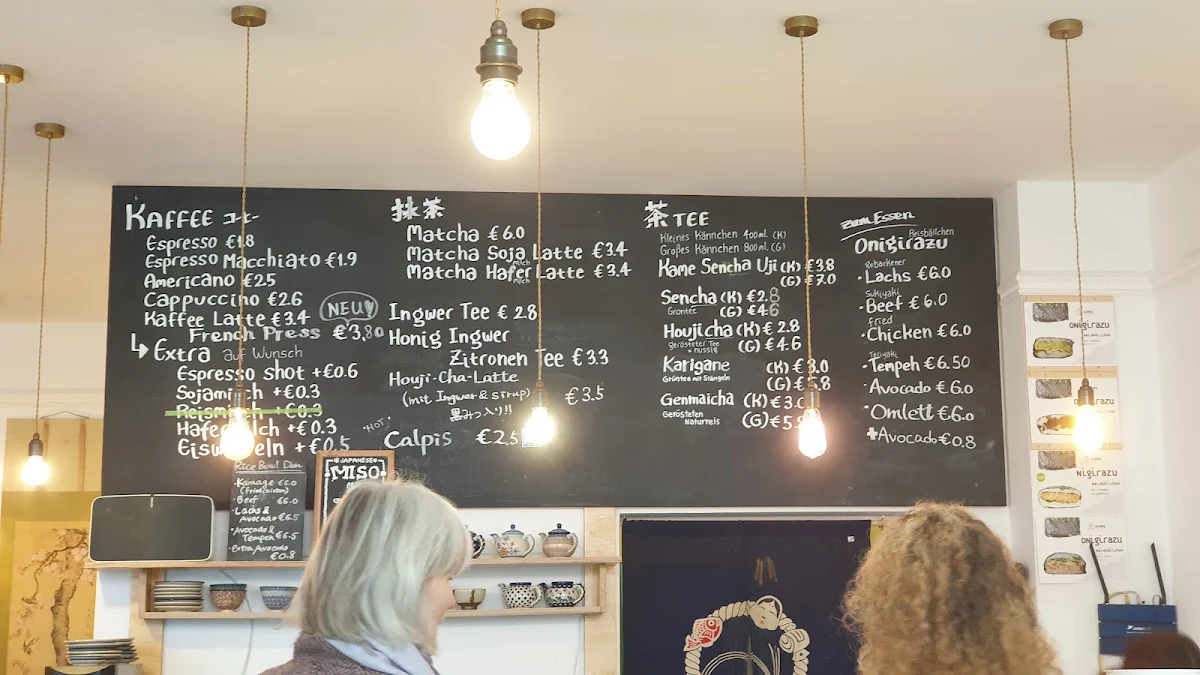 KAFFEE コーヒー
Espresso €1.8
Espresso Macchiato €1.9
Americano €2.5
Cappuccino €2.6
Kaffee Latte €3.4
NEU
French Press €3,80
Extra auf Wunsch
Espresso shot +€0.6
Sojamilch +€0.3
Reismilch +€0.3
Hafermilch +€0.3
Eiswürfeln +€0.5
抹茶
Matcha €6.0
Matcha Soja Latte €3.4
Matcha Hafer Latte €3.4
Milch
Ingwer Tee €2.8
Honig Ingwer
Zitronen Tee €3.3
Houji-Cha-Latte
(mit Ingwer & sirup) €3.5
黒みつ入り!!
"HOT"
Calpis €2.5
茶 TEE
Kleines Kännchen 400ml. (K)
Großes Kännchen 800ml. (G)
Kame Sencha Uji (K) €3.8
(G) €7.0
Sencha (K) €2.8
Grüntee (G) €4.6
Houjicha (K) €2.8
gerösteter Tee (G) €4.6
nussig
Karigane (K) €3.0
Grüntee mit Stängeln (G)
Genmaicha (K) €3.
Gerösteten (G) €5.
Naturreis
zum Essen
Reisbällchen
Onigirazu
gebackener
・Lachs €6.0
Sukiyaki
・Beef €6.0
fried
・Chicken €6.0
Teriyaki
・Tempeh €6.50
・Avocado €6.0
・Omlett €6.0
+Avocado €0.8
Rice Bowl Don
・Karaage €6.0
(Fried chicken)
・Beef €6.0
・Lachs &
Avocado €6.5
・Avocado &
Tempeh €6.5
・Extra Avocado
€0.8
JAPANESE
MISO
ONIGIRAZU
ONIGIRAZU
NIGIRAZU
ONIGIRAZU